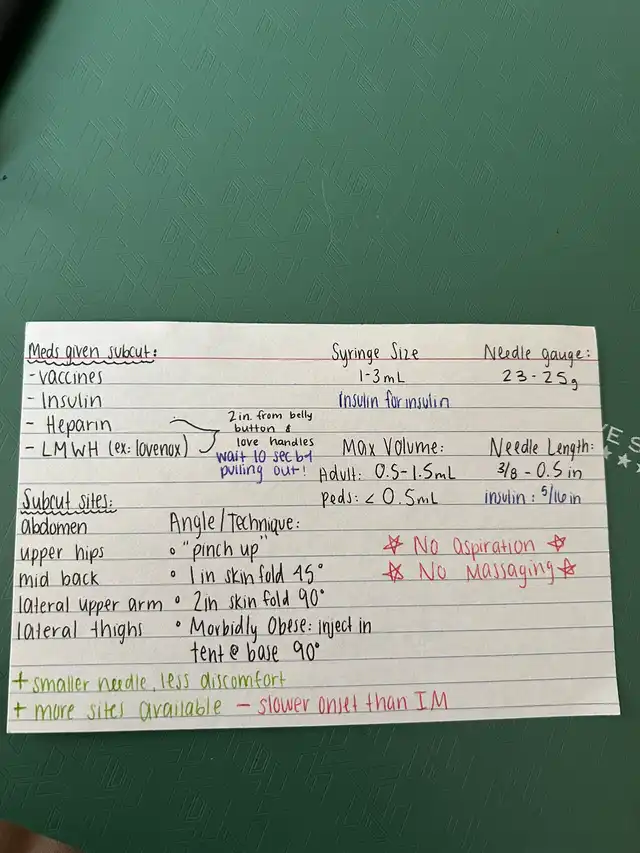 Meds given subcut:
- vaccines
- Insulin
- Heparin
- LMWH (ex: lovenox)
2 in. from belly
button &
love handles
wait 10 sec b4
pulling out!
Syringe Size
1-3mL
Insulin for insulin
Needle gauge:
23-25g
Max Volume:
Adult: 0.5-1.5mL
peds: < 0.5mL
Needle Length:
3/8 - 0.5 in
insulin: 5/16 in
Subcut sites:
abdomen
upper hips
mid back
lateral upper arm
lateral thighs
Angle/Technique:
• "pinch up"
• 1 in skin fold 45°
• 2in skin fold 90°
• Morbidly Obese: inject in
tent @ base 90°
☆ No aspiration ☆
☆ No Massaging ☆
+ smaller needle, less discomfort
+ more sites available - slower onset than IM
VE S
★★★